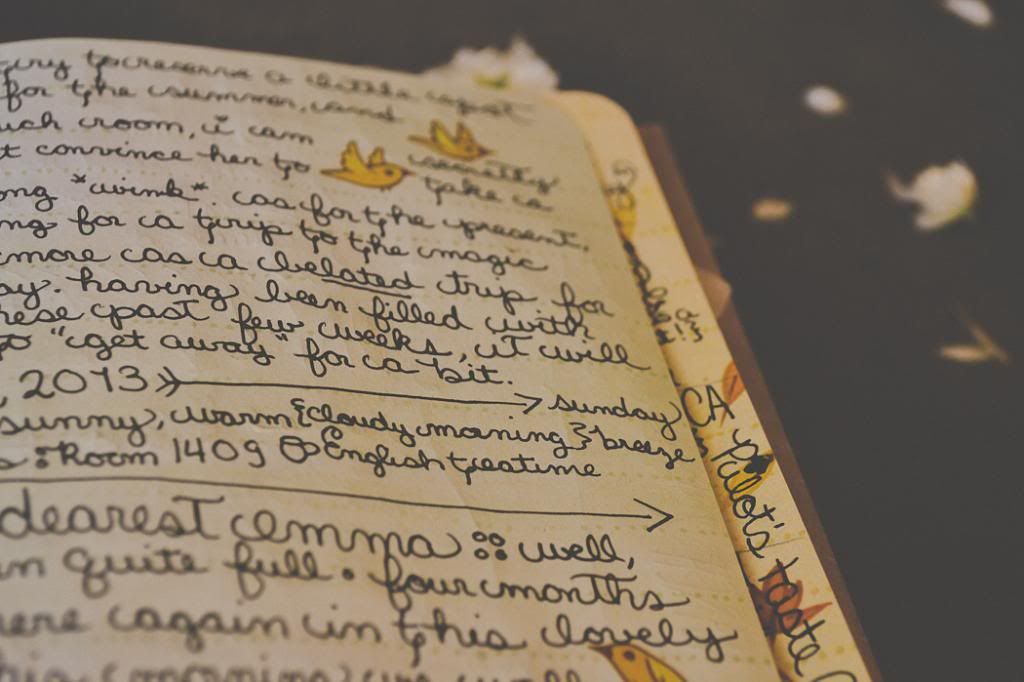 try to preserve a little
for the summer, and
uch room, i am
t convince her to secretly
ong *wink*. take a
as for the present,
ng for a trip to the magic
more as a belated trip for
ay. having been filled with
hese past few weeks, it will
to "get away" for a bit.
, 2013 sunday
sunny, warm {cloudy morning} breeze
s : Room 1409 English teatime
dearest emma :: well,
in quite full. four months
here again in this lovely
this morning, we
CA Pilot's taste